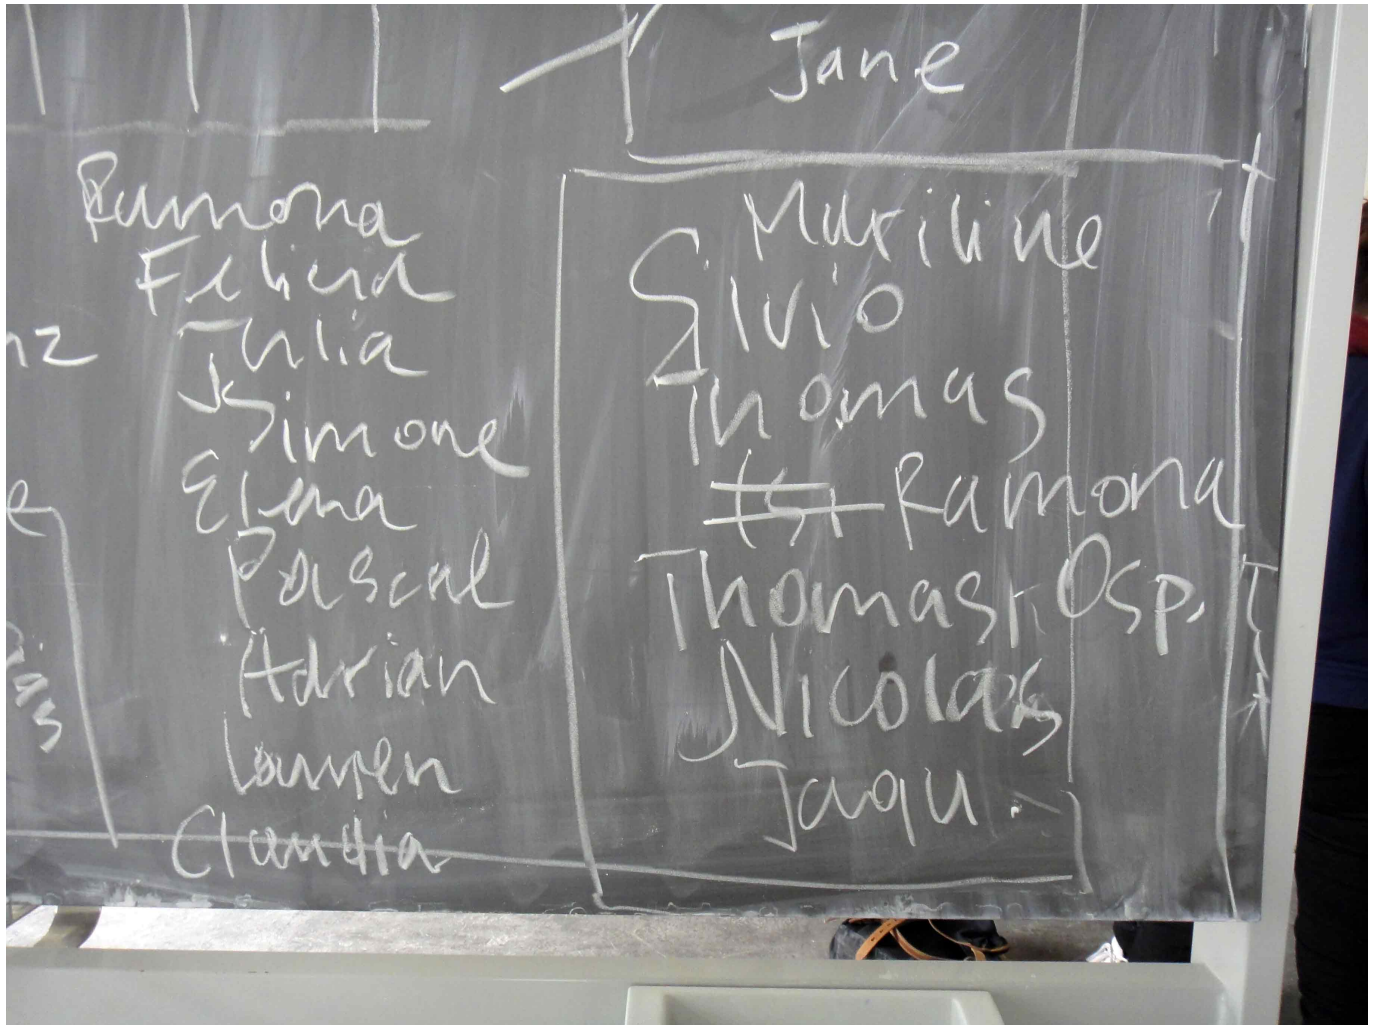 Jane
Ramona
Felicia
Julia
Simone
Elena
Pascal
Adrian
Lauren
Claudia
nz
e
Mariline
Silvio
Thomas
Ramona
Thomas, Osp.
Nicolas
Jaqu.